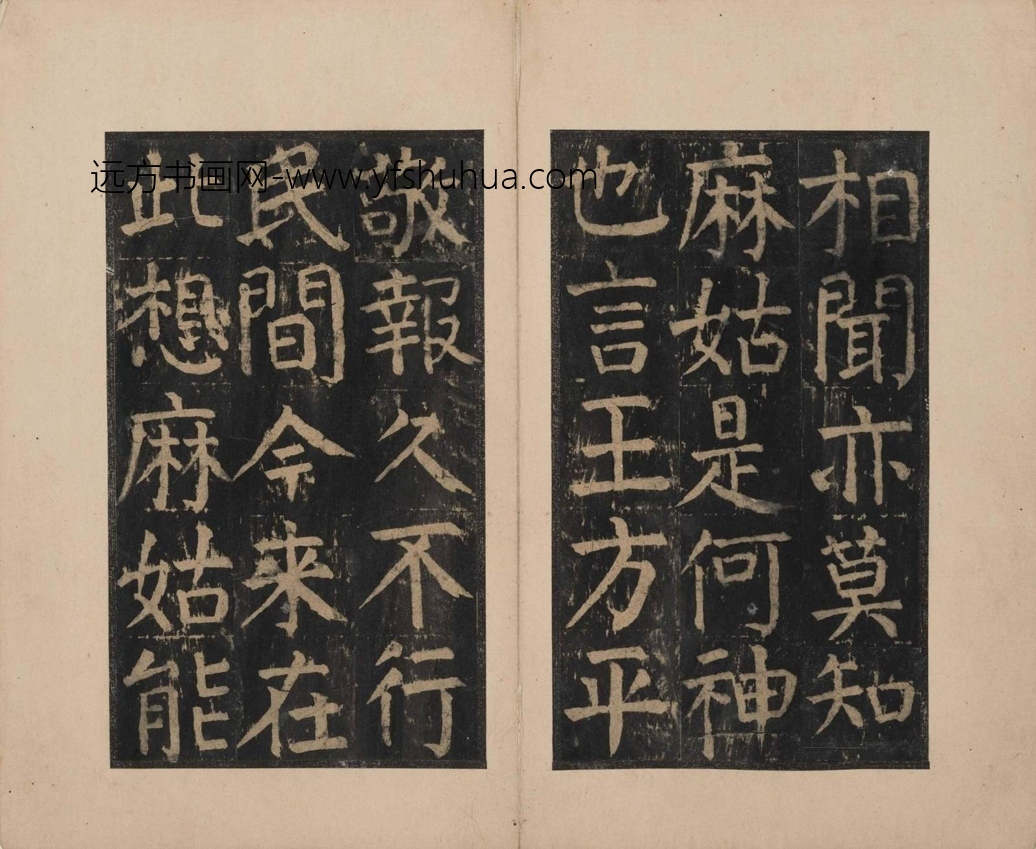 相聞亦莫知
麻姑是何神
也言王方平
敬報久不行
民間今来在
此想麻姑能
远方书画网-www.yfshuhua.com